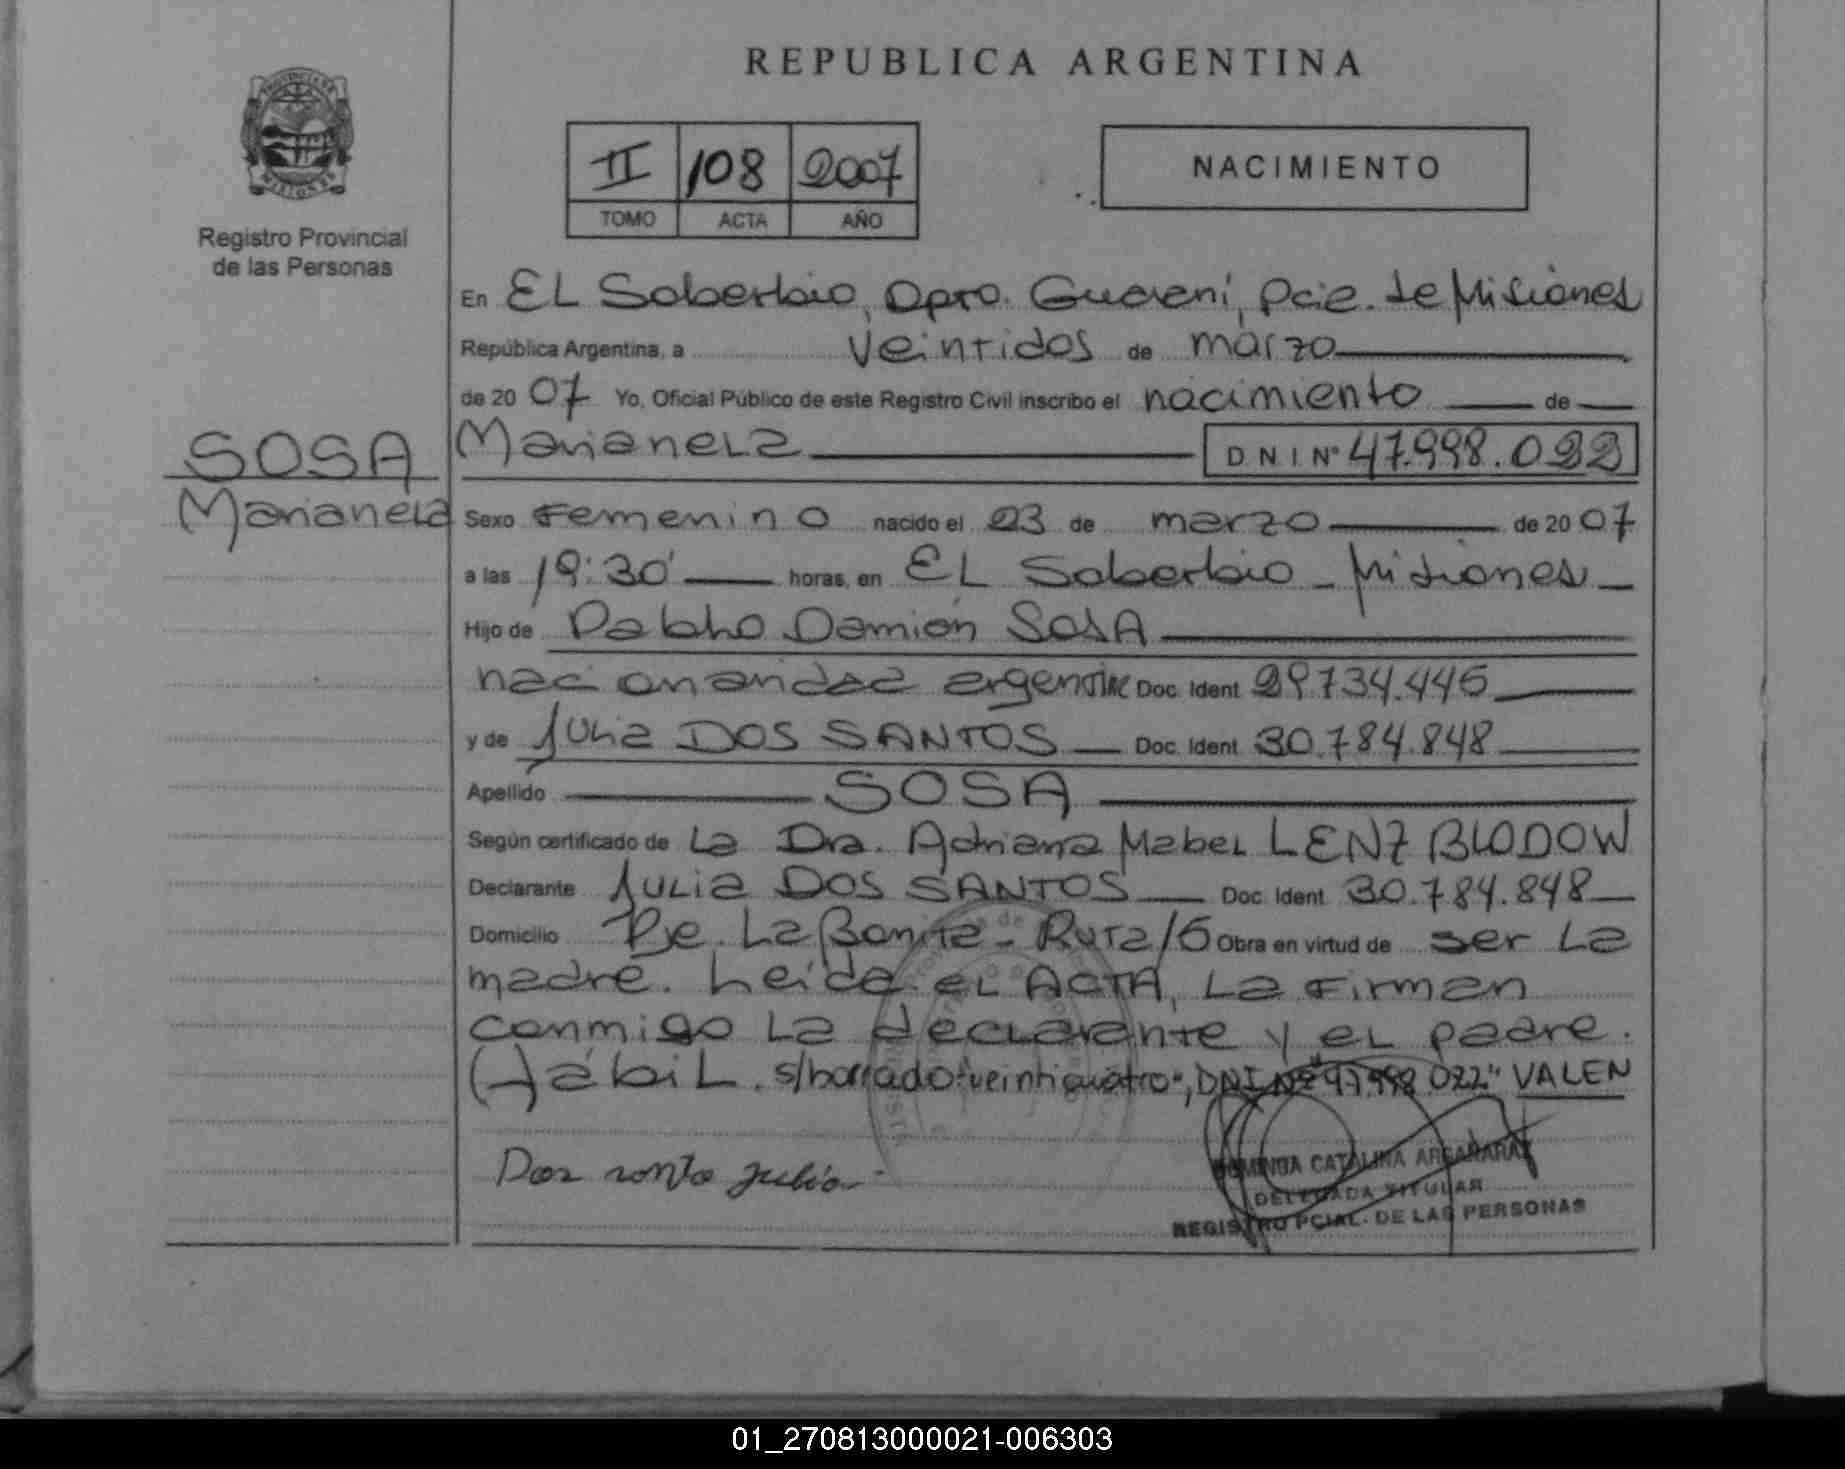 REPUBLICA ARGENTINA
PROVINCIA DE
MISIONES
Registro Provincial
de las Personas
II 108 2007
TOMO ACTA AÑO
NACIMIENTO
En EL Soberbio, Dpto. Guaraní, Pcia. de Misiones
República Argentina, a veintidos de marzo
de 2007 Yo, Oficial Público de este Registro Civil inscribo el nacimiento de
SOSA
Marianela
Marianela
D N I Nº 47.998.022
Sexo Femenino nacido el 03 de marzo de 2007
a las 19:30' horas, en EL Soberbio - Misiones
Hijo de Pablo Damián SOSA
nacionalidad argentina Doc. Ident 29.734.445
y de Julia DOS SANTOS Doc. Ident 30.784.848
Apellido SOSA
Según certificado de La Dra. Adriana Mabel LENZ BLODOW
Declarante Julia DOS SANTOS Doc. Ident 30.784.848
Domicilio Pje. La Bonita - Ruta 15 Obra en virtud de ser La
madre. Leída el ACTA, La Firman
conmigo La declarante y el padre.
Hábil. s/borrado: "veintiquatro", DNI Nº "47.998.022" VALEN
Dos santo Julia
CATALINA ARGAÑARAZ
DELEGADA TITULAR
REGISTRO PCIAL. DE LAS PERSONAS
01_270813000021-006303